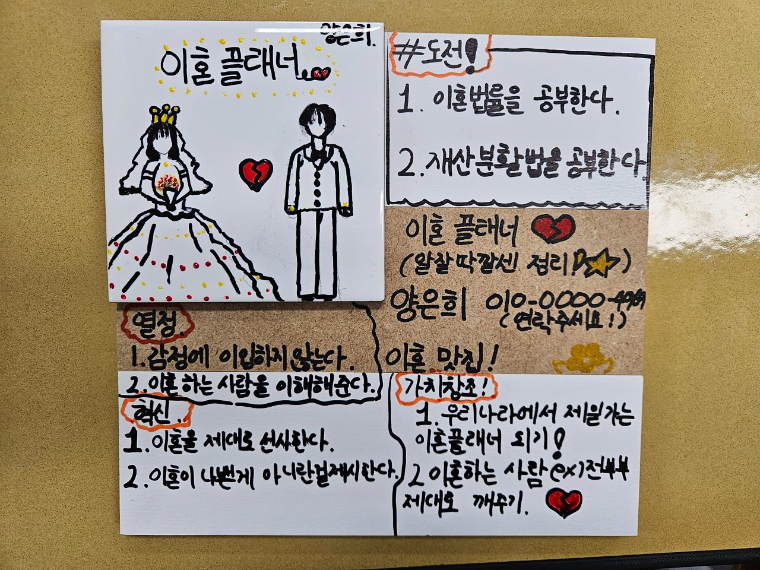 양은희.
이혼 플래너
#도전!
1. 이혼법률을 공부한다.
2. 재산분활법을 공부한다.
이혼 플래너
(알잘딱깔센 정리!)
양은희 010-0000-4989
(연락주세요!)
이혼 맛집!
열정.
1. 감정에 이입하지않는다.
2. 이혼하는 사람을 이해해준다.
혁신.
1. 이혼을 제대로 선사한다.
2. 이혼이 나쁜게 아니란걸 제시한다.
가치창조!
1. 우리나라에서 제일가는
이혼플래너 되기!
2 이혼하는 사람 ex)전부부
제대로 깨주기.